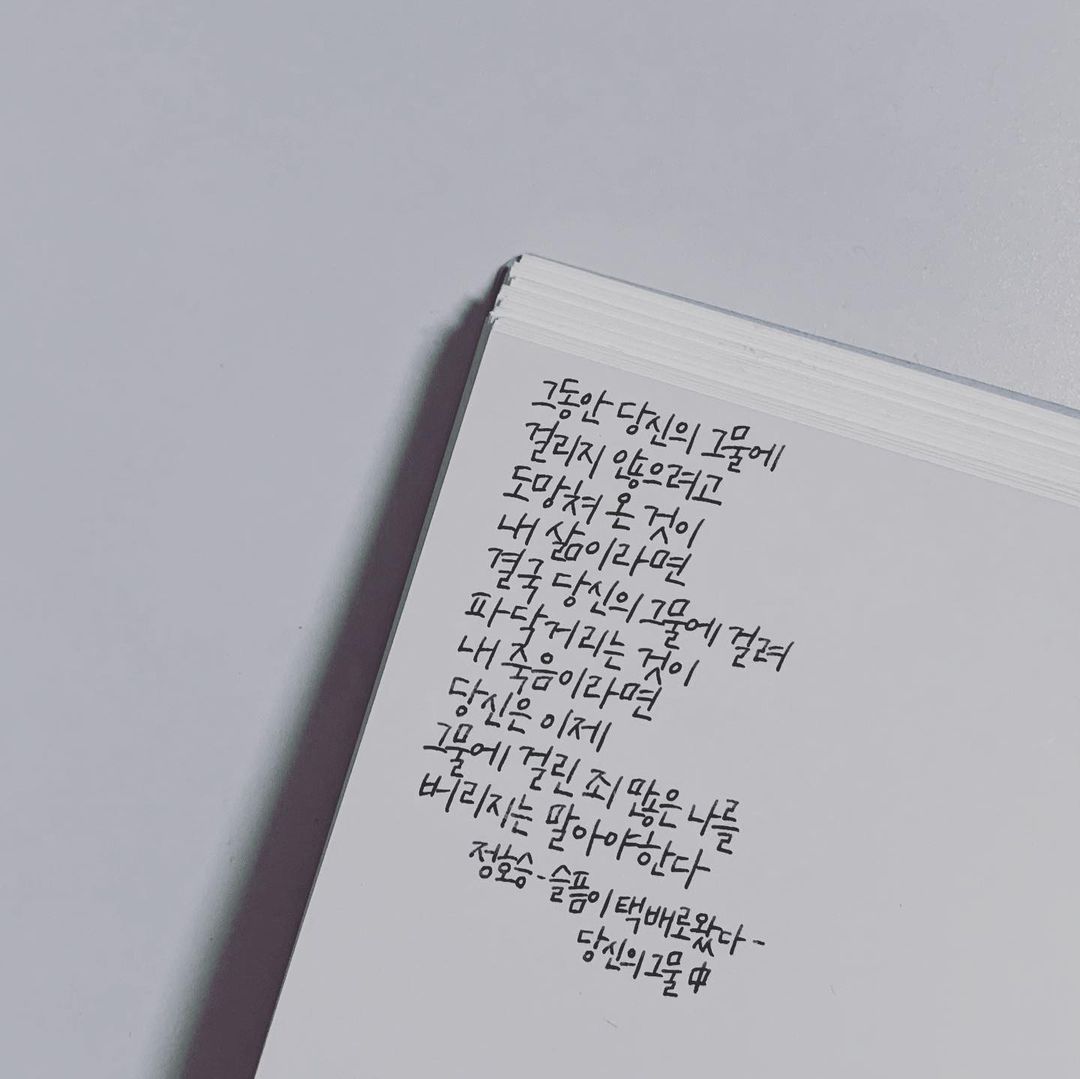 그동안 당신의 그물에
걸리지 않으려고
도망쳐 온 것이
내 삶이라면
결국 당신의 그물에 걸려
파닥거리는 것이
내 죽음이라면
당신은 이제
그물에 걸린 죄 많은 나를
버리지는 말아야한다
정호승 - 슬픔이 택배로왔다 -
당신의 그물 中